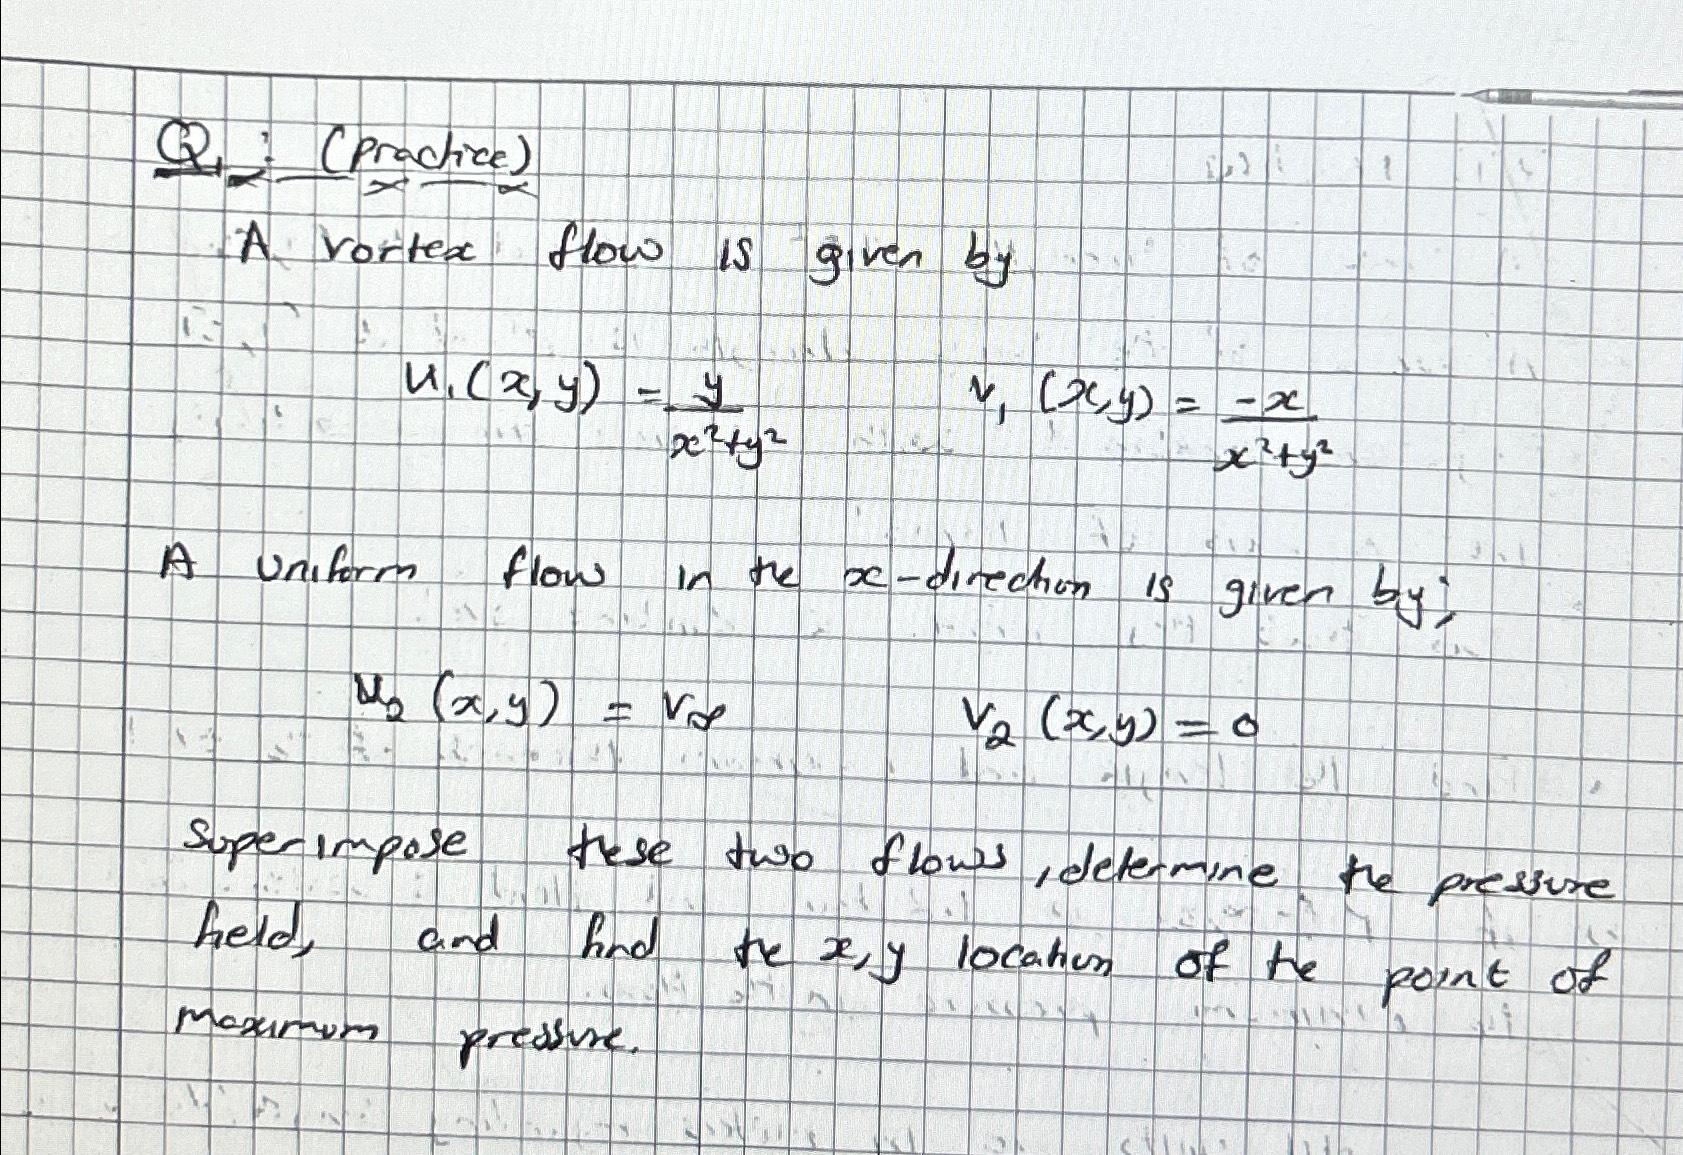 Q1: (practice)
A vortex flow is given by
u1(x,y) = y/(x²+y²) v1(x,y) = -x/(x²+y²)
A uniform flow in the x-direction is given by;
u2(x,y) = V∞ V2(x,y) = 0
Superimpose these two flows, determine the pressure
field, and find the x,y location of the point of
maximum pressure.